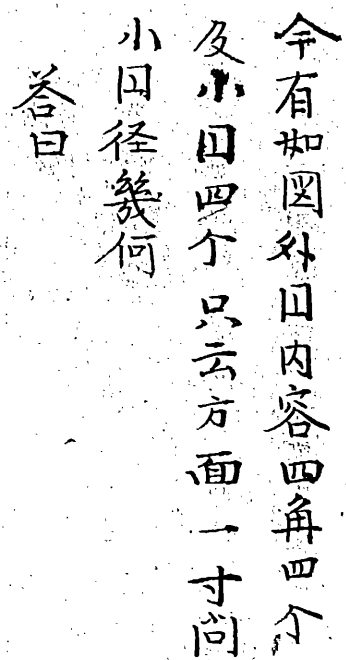 今有如図外円内容四角四个
及小円四个只云方面一寸問
小円径幾何
答曰